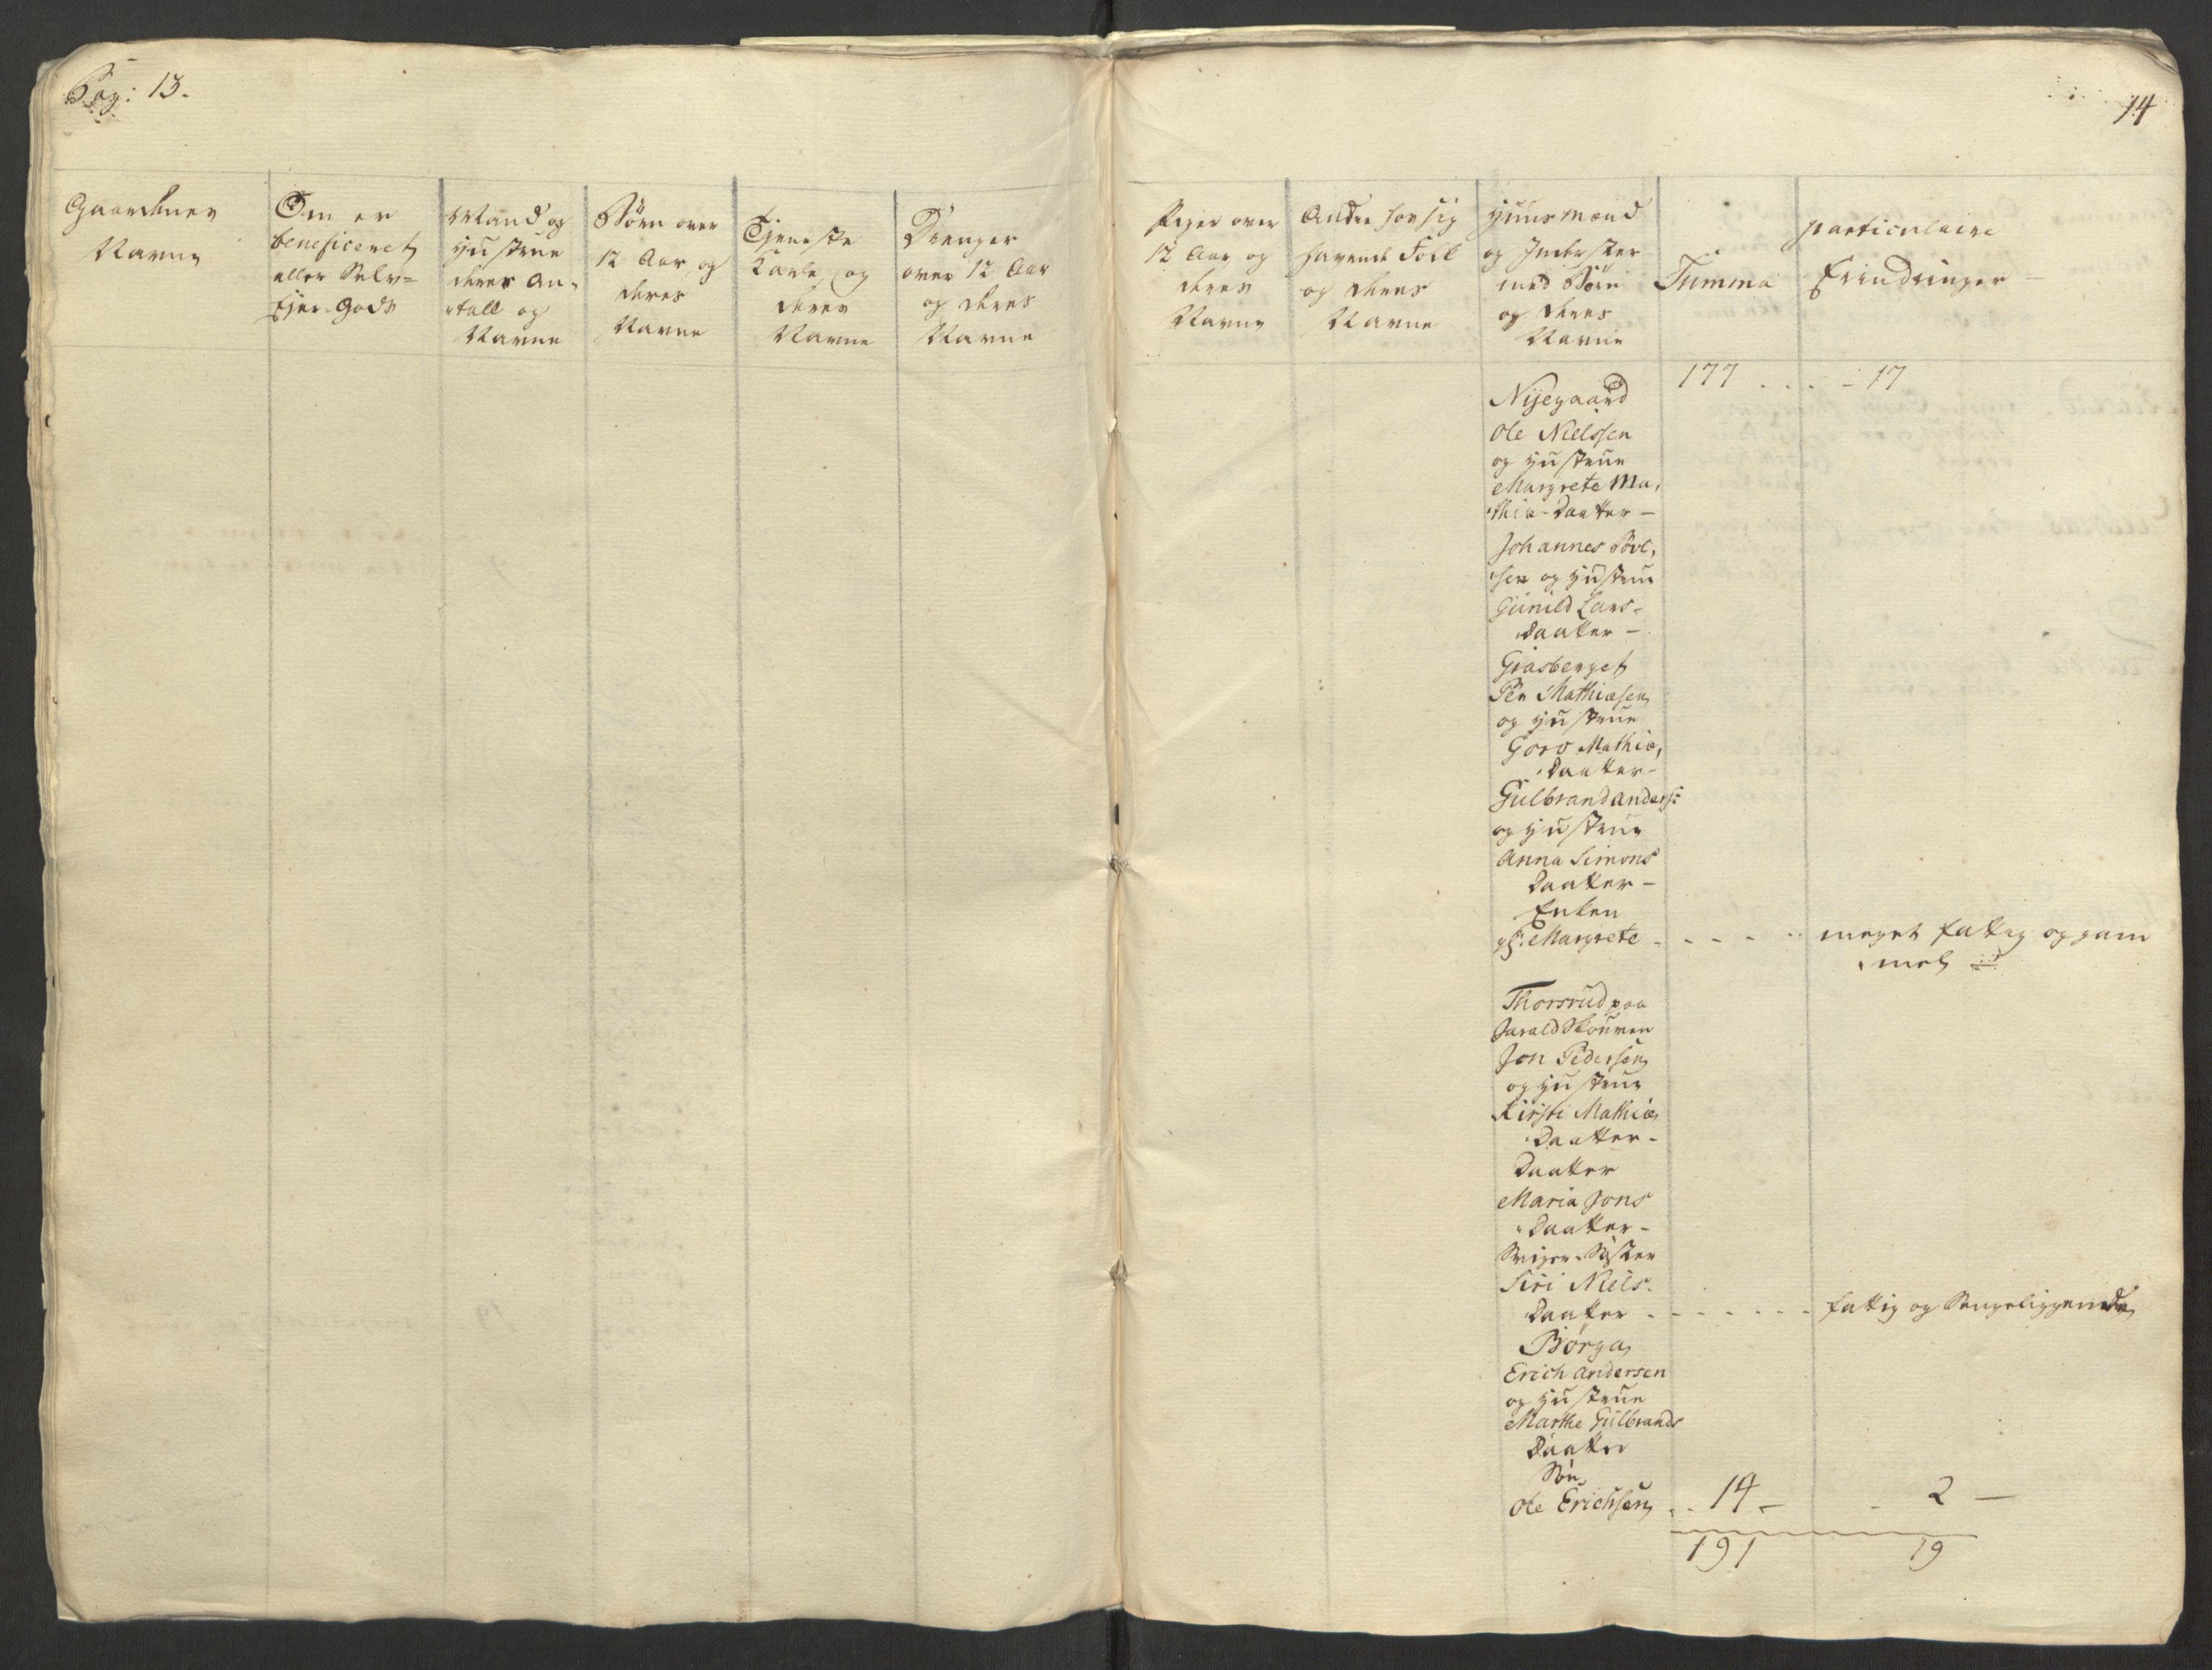 Pag: 13.
Gaardenes
Navne
Om er
beneficeret
eller Selv=
Ejer-Gods
Mand og
Hustrue
deres An-
tall og
Navne
Börn over
12 Aar og
deres
Navne
Tjeneste
Karle og
deres
Navne
Drenger
over 12 Aar
og deres
Navne
14
Piger over
12 Aar og
deres
Navne
Andre for sig
havende Folk
og deres
Navne
Huusmænd
og Inderster
med Börn
og deres
Navne
Summa
particulaire
Erindringer
177 . . . - 17
Nÿegaard
Ole Nielssen
og Hustrue
Margrete Ma,
thiæ-Daatter -
Johannes Povl,
sen og Hustrue
Gunild Lars-
Daatter -
Giasberget
Per Mathiæsen
og Hustrue
Goro Mathiæ,
Daatter-
Gulbrand Anders:
og Hustrue
Anna Simons
Daatter -
Enken
Margrete - - - - - meget fattig og gam
mel
Thorsrud paa
Harald Skouven
Jon Pedersen
og Hustrue
Kirsti Mathiæ
Daatter-
Daatter
Maria Jons
Daatter-
Sviger-Söster
Siri Niels-
Daatter - - - - - - - fattig og Sengeliggende
Börga
Erich Andersen
og Hustrue
Marthe Gulbrands
Daatter
Sön
Ole Erichsen - - 14 - - 2 -
191 19